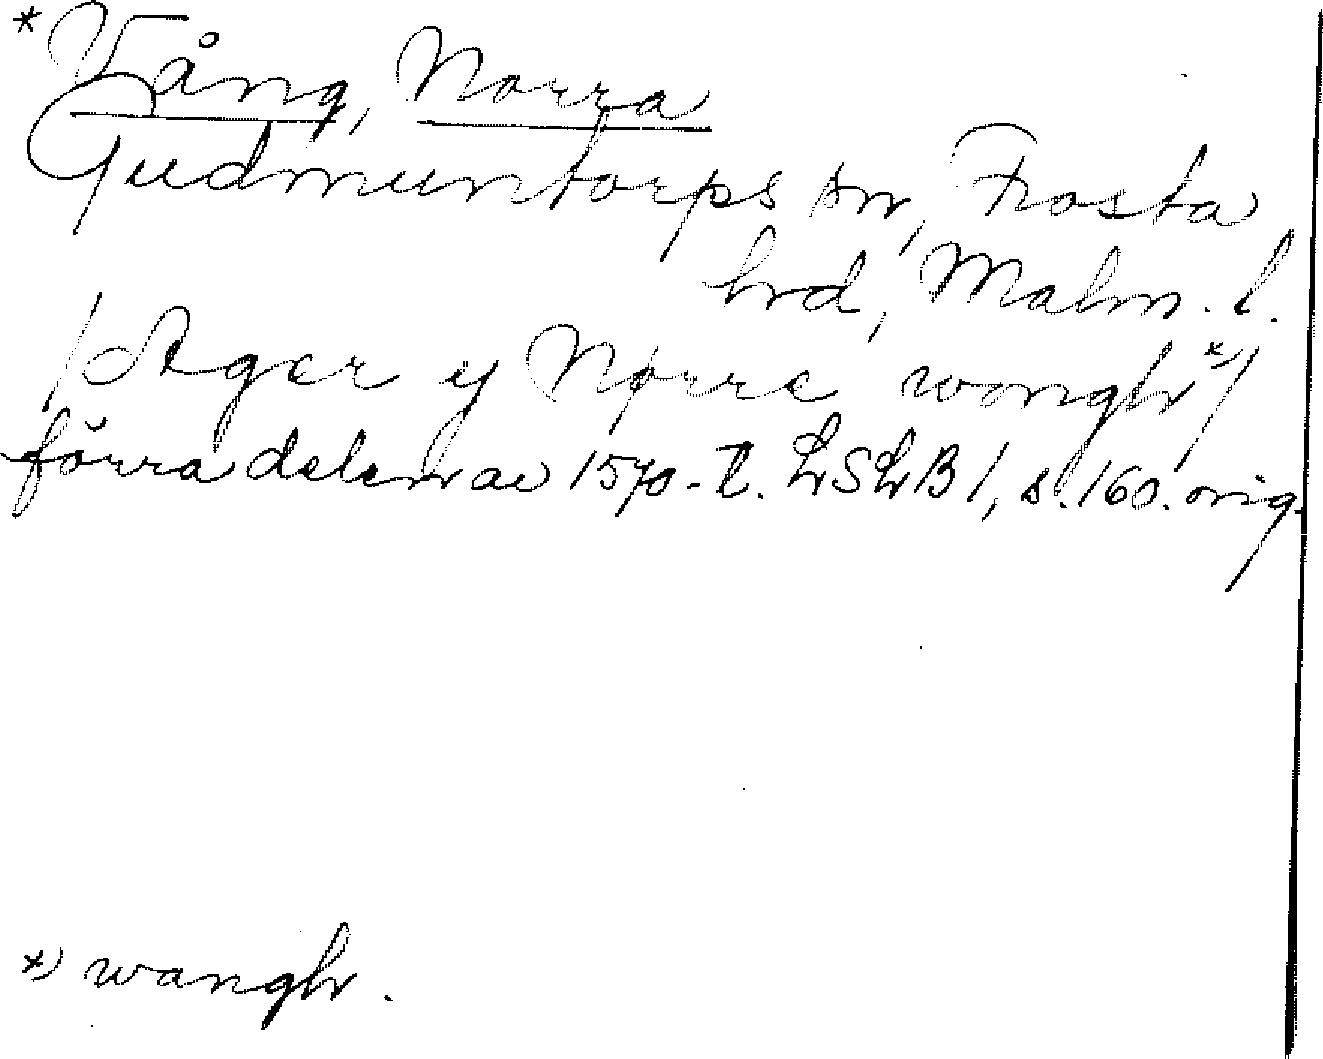 *Vång, Norra
Gudmuntorps sn, Frosta
hrd, Malm. l.
/Ager y Nørre wongh*)/
förra delen av 1570-t. LSLB 1, s. 160. orig.
*) wangh.